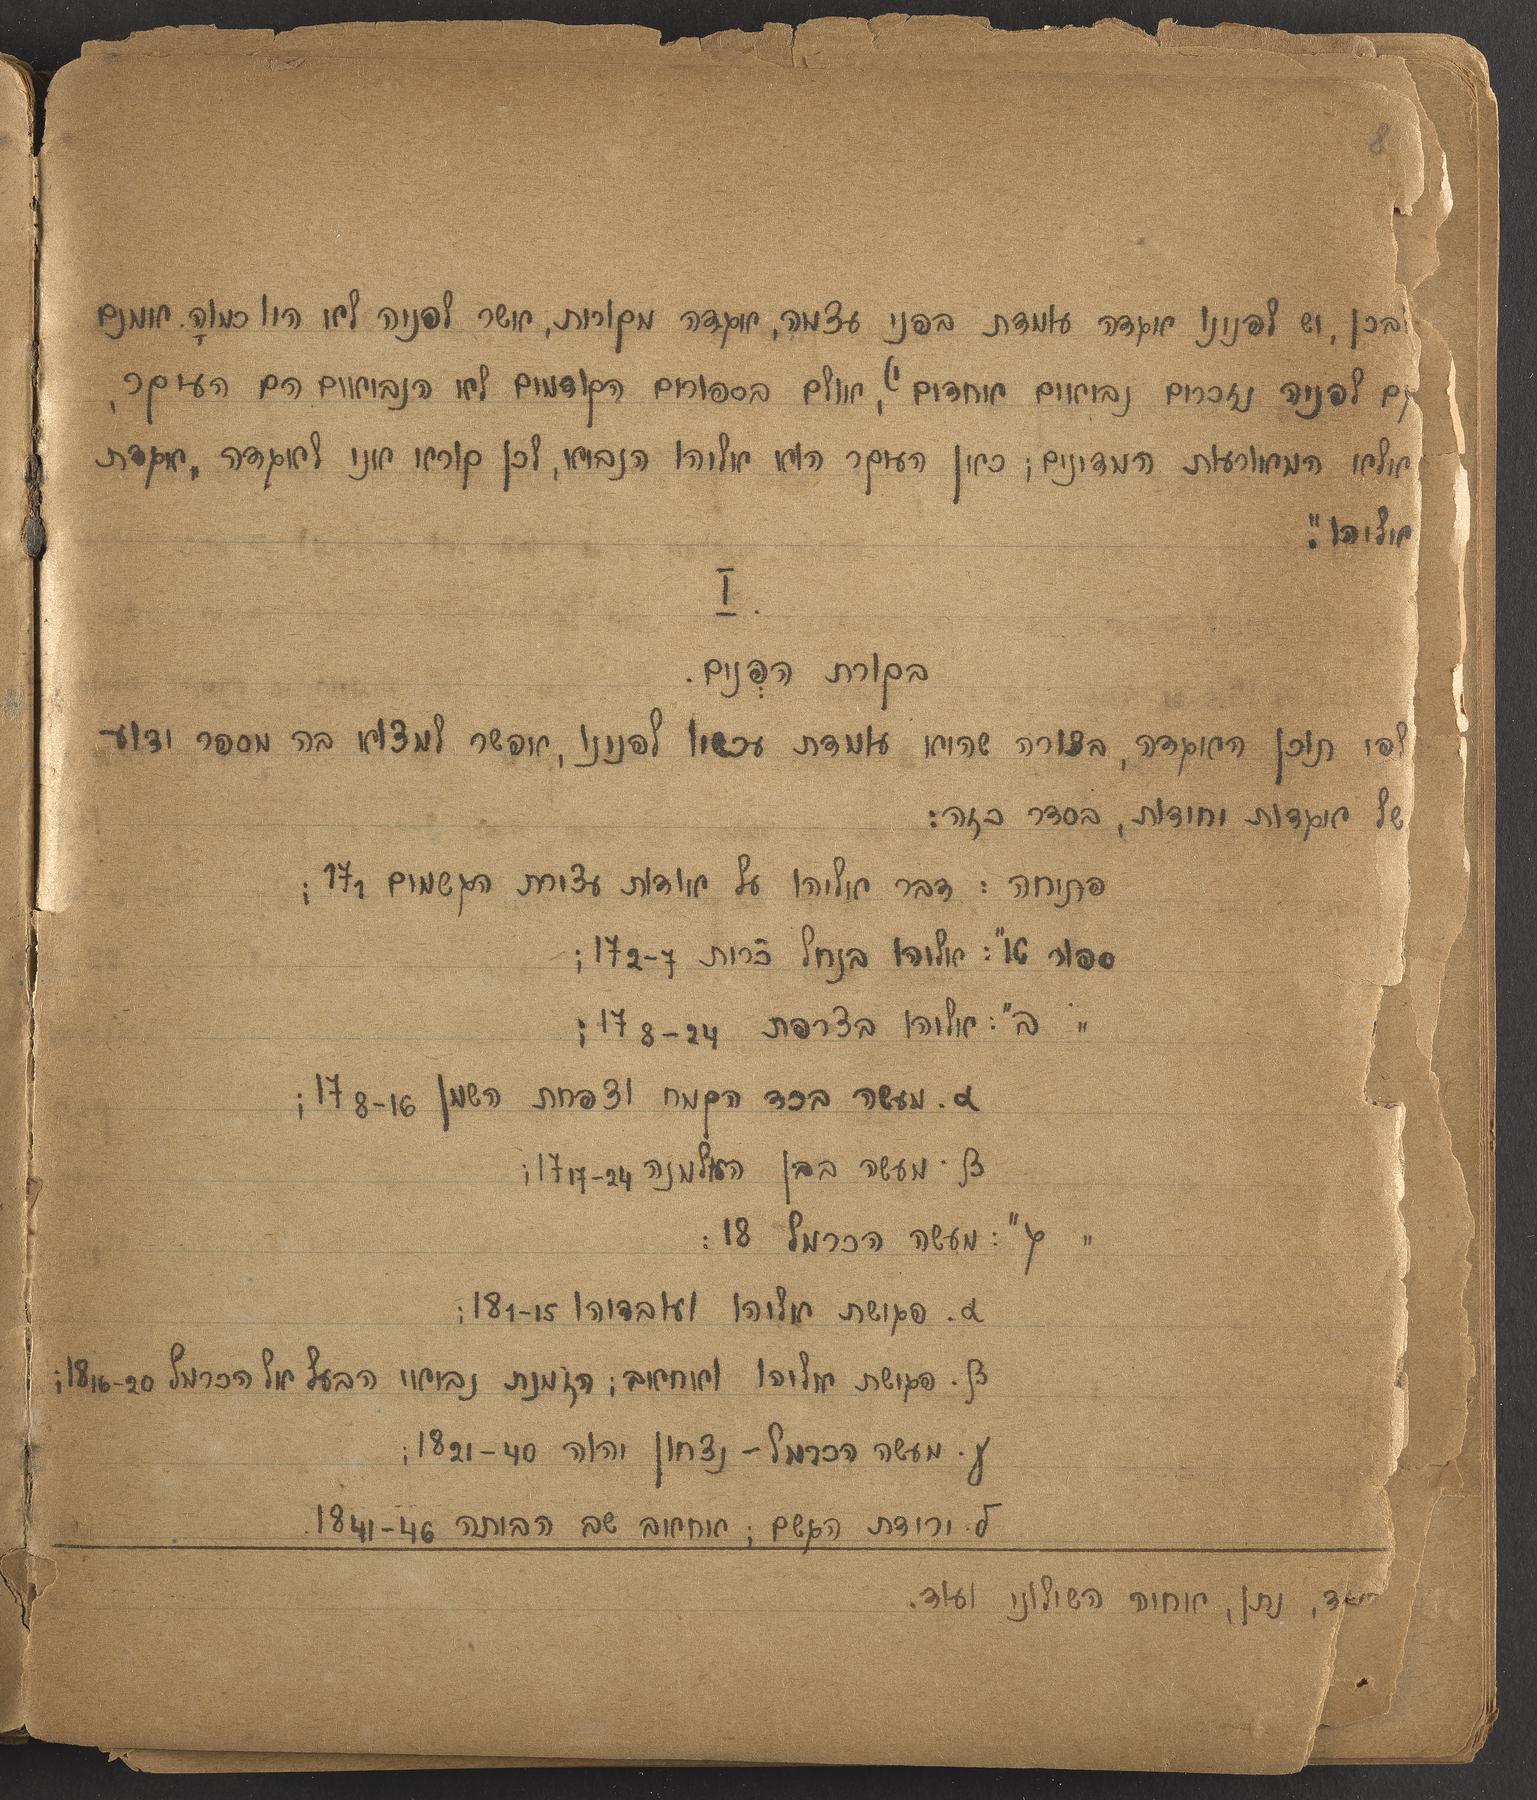 8
ובכן, יש לפנינו אגדה עומדת בפני עצמה, אגדה מקורית, אשר לפניה לא היו כמוהָ. אומנם
גם לפניה נזכרים נביאים אחדים¹⁾, אולם בספורים הקודמים לא הנביאים הם העיקר,
אלא המאורעות המדינים; כאן העיקר הוא אליהו הנביא, לכן קורא אני לאגדה „אגדת
אליהו".
I.
בקורת הפְּנים.
לפי תוכן האגדה, בצורה שהיא עומדת עכשיו לפנינו, אפשר למצוא בה מספר ידוע
של אגדות יחידות, בסדר כזה:
פתיחה: דבר אליהו על אודות עצירת הגשמים 17 1;
ספור א": אליהו בנחל כרית 17 2-7;
" ב": אליהו בצרפת 17 8-24;
α. מעשה בכד הקמח וצפחת השמן 17 8-16;
β. מעשה בבן האלמנה 17 17-24;
" ג": מעשה הכרמל 18:
α. פגישת אליהו ועובדיהו 18 1-15;
β. פגישת אליהו ואחאב; הזמנת נביאי הבעל אל הכרמל 18 16-20;
γ. מעשה הכרמל – נצחון יהוה 18 21-40;
δ. ירידת הגשם; אחאב שב הביתה 18 41-46.
נתן, אחיה השילוני ועוד.